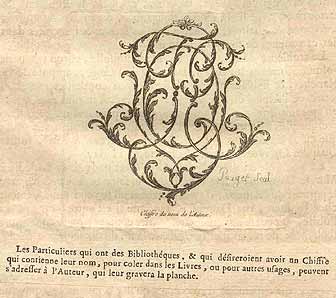 Purget Scul
Chiffre du nom de l'Auteur.
Les Particuliers qui ont des Bibliothéques, & qui désireroient avoir un Chiffre
qui contienne leur nom, pour coler dans les Livres, ou pour autres usages, peuvent
s'adresser à l'Auteur, qui leur gravera la planche.